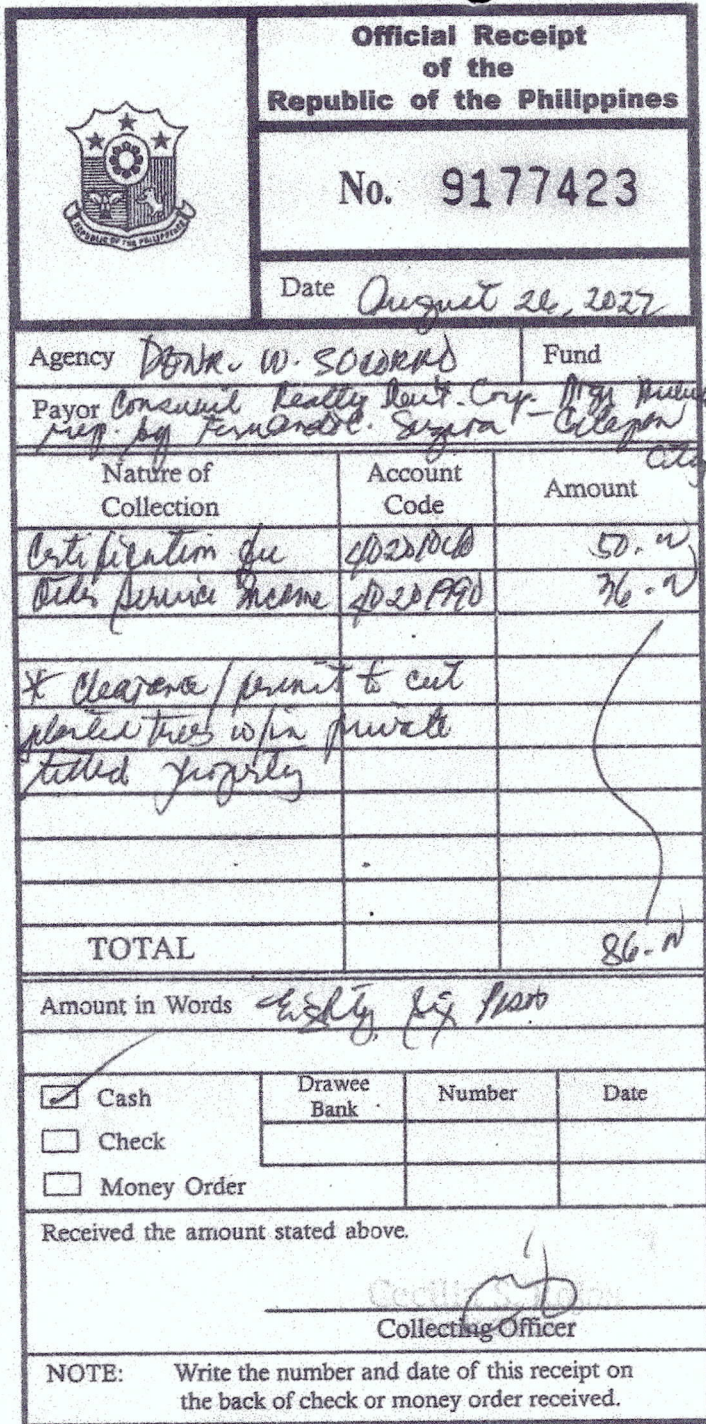 Official Receipt
of the
Republic of the Philippines
REPUBLIC OF THE PHILIPPINES
No. 9177423
Date August 26, 2022
Agency DENR - W. SOCORRO
Fund
Payor Realty Corp.
rep. by Fernando C. - Calapan
City
Nature of Collection Account Code Amount
Certification fee 50.-
Order Service Income 36.-
* Clearance / permit to cut
planted trees w/in private
titled property
TOTAL 86.-
Amount in Words Eighty Six Pesos
Cash Drawee Bank Number Date
Check
Money Order
Received the amount stated above.
Collecting Officer
NOTE: Write the number and date of this receipt on
the back of check or money order received.